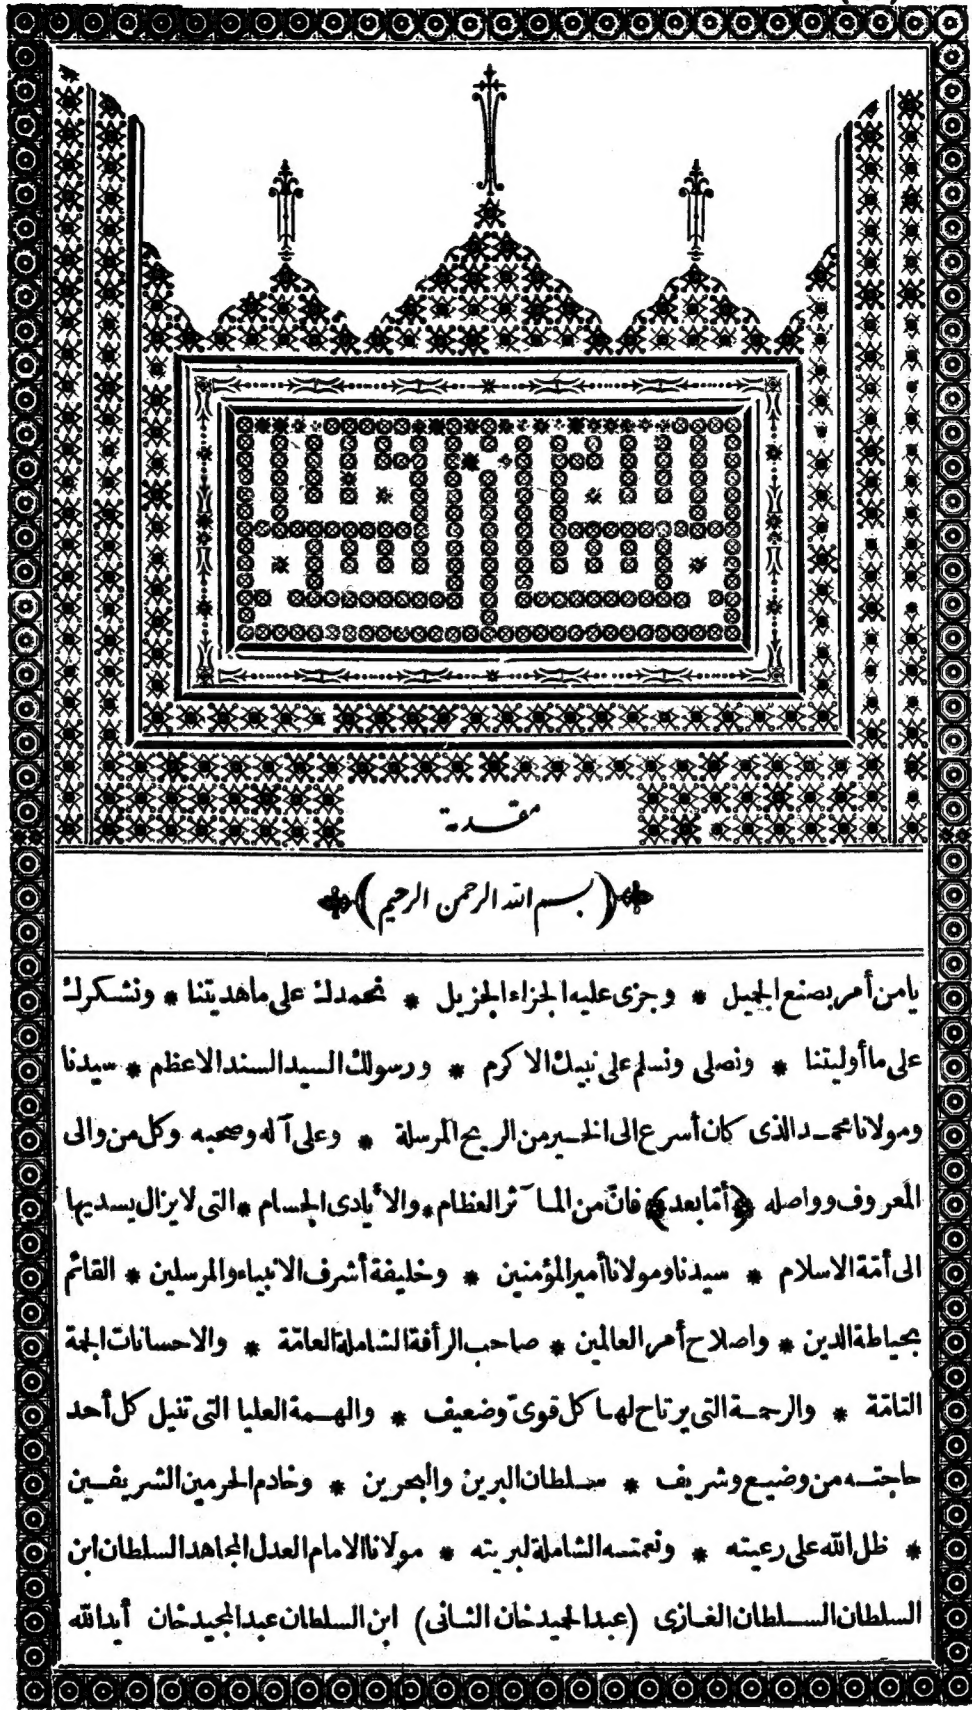 مقدمة
﴿بسم الله الرحمن الرحيم﴾
يامن أمر بصنع الجميل * وجزى عليه الجزاء الجزيل * نحمدك على ماهديتنا * ونشكرك
على ماأوليتنا * ونصلى ونسلم على نبيك الاكرم * ورسولك السيد السند الاعظم * سيدنا
ومولانا محمد الذى كان أسرع الى الخير من الريح المرسلة * وعلى آله وصحبه وكل من والى
المعروف وواصله ﴿أمّابعد﴾ فانّ من المآثر العظام * والأيادى الجسام * التى لايزال يسديها
الى أمّة الاسلام * سيدنا ومولانا أمير المؤمنين * وخليفة أشرف الانبياء والمرسلين * القائم
بحياطة الدين * واصلاح أمر العالمين * صاحب الرأفة الشاملة العامّة * والاحسانات الجمة
التامّة * والرحمة التى يرتاح لها كل قوىّ وضعيف * والهمة العليا التى تنيل كل أحد
حاجته من وضيع وشريف * سلطان البرين والبحرين * وخادم الحرمين الشريفين
* ظل الله على رعيته * ونعمته الشاملة لبريته * مولانا الامام العدل المجاهد السلطان ابن
السلطان السلطان الغازى (عبد الحميد خان الثانى) ابن السلطان عبد المجيد خان أيد الله